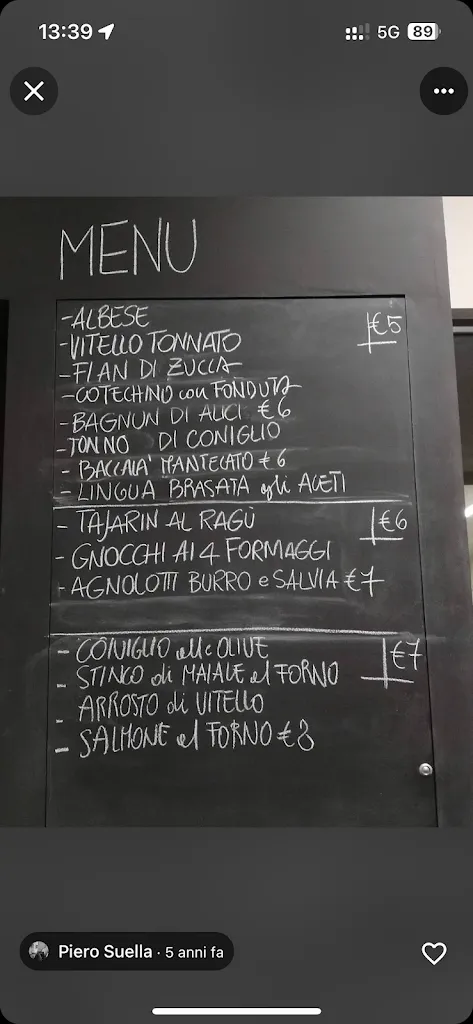 13:39
5G 89
MENU
-ALBESE
€5
-VITELLO TONNATO
-FLAN DI ZUCCA
-COTECHINO con FONDUTA
-BAGNUN DI ALICI €6
-TONNO DI CONIGLIO
-BACCALA' MANTECATO €6
-LINGUA BRASATA agli ACETI
-TAJARIN AL RAGÙ
€6
-GNOCCHI AI 4 FORMAGGI
-AGNOLOTTI BURRO e SALVIA €7
-CONIGLIO alle OLIVE
€7
-STINCO di MAIALE al FORNO
-ARROSTO di VITELLO
-SALMONE al FORNO €8
Piero Suella · 5 anni fa